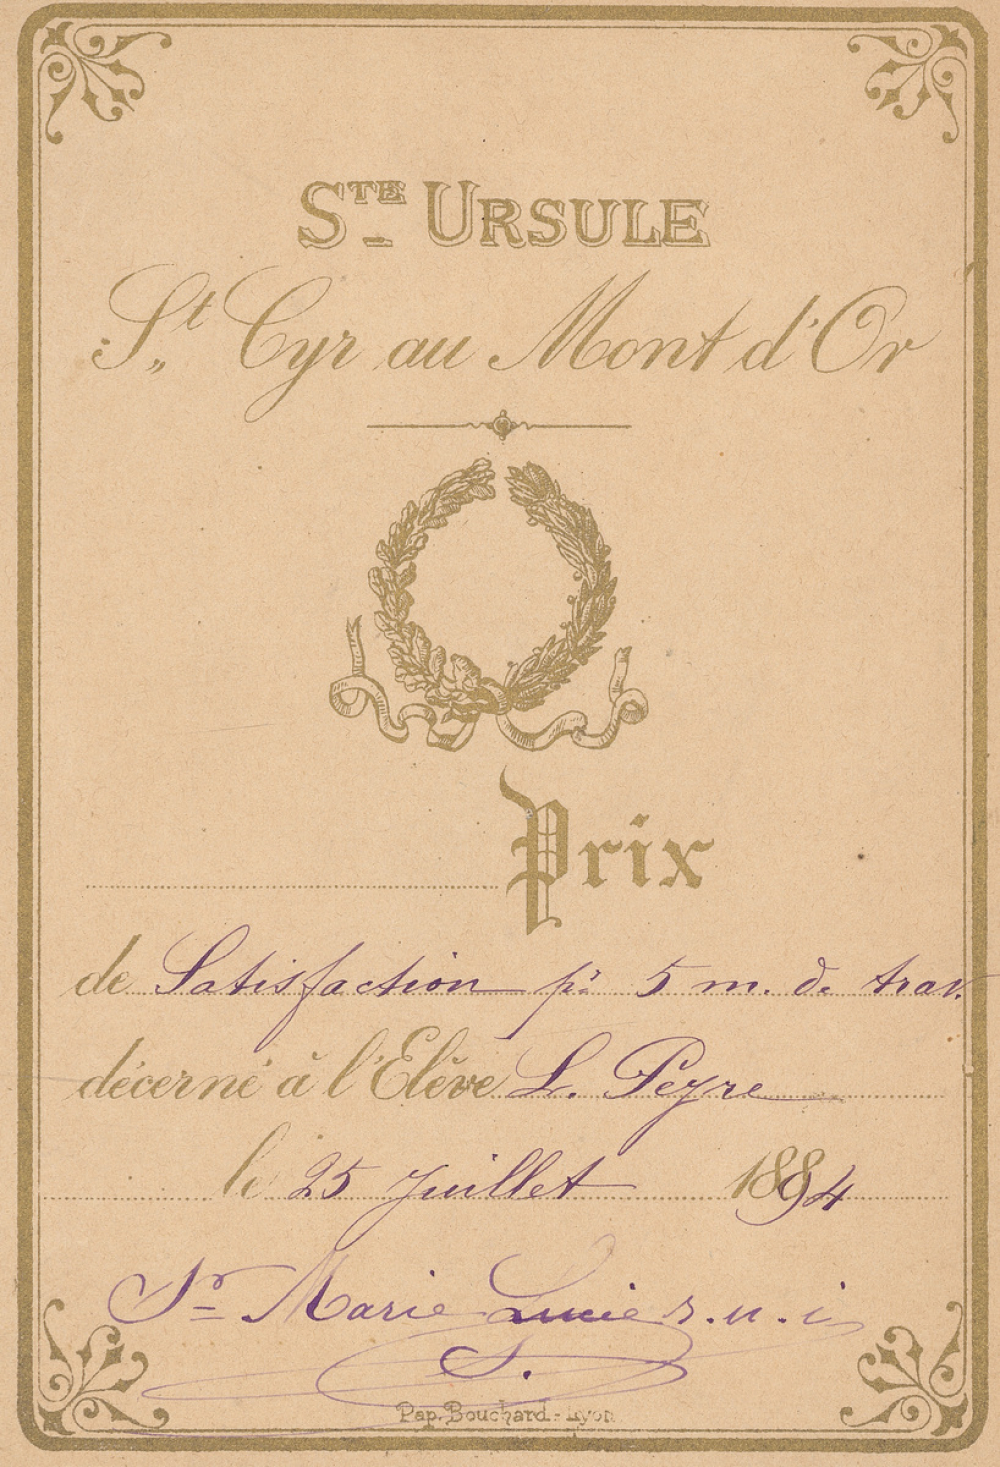 STE URSULE
St Cyr au Mont d'Or
Prix
de Satisfaction pr 5 m. de trav.
décerné à l'Elève L. Peyre
le 25 Juillet 1894
Sr Marie Lucie r. u. i
S.
Pap. Bouchard - Lyon